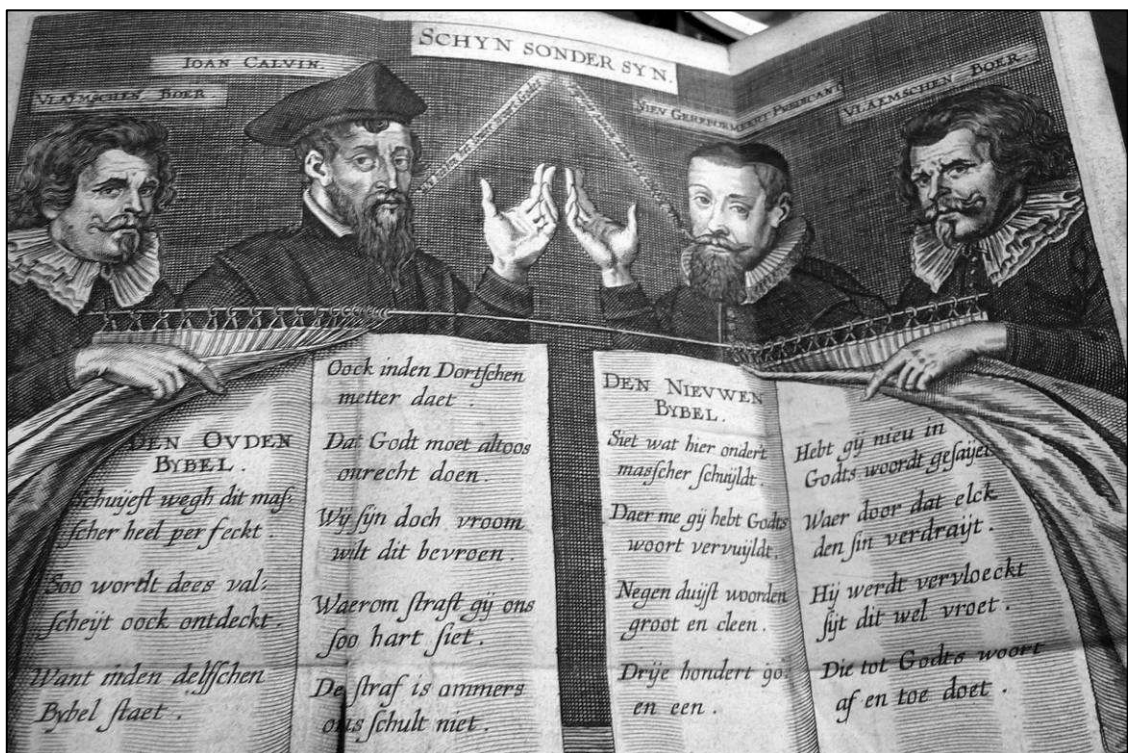 SCHYN SONDER SYN.
IOAN CALVIN.
VLAEMSCHEN BOER
NIEV GEREFORMEERT PREDICANT
VLAEMSCHEN BOER.
DEN OVDEN
BYBEL.
Schuijeft wegh dit maſ⸗
ſcher heel perfeckt.
Soo wordt dees val⸗
ſcheijt oock ontdeckt.
Want inden delſſchen
Bybel ſtaet.
Oock inden Dortſchen
metter daet.
Dat Godt moet altoos
onrecht doen.
Wij ſijn doch vroom
wilt dit bevroen.
Waerom ſtraft gij ons
ſoo hart ſiet.
De ſtraf is ammers
ons ſchult niet.
DEN NIEVWEN
BYBEL.
Siet wat hier ondert
maſſcher ſchuijldt.
Daer me gij hebt Godts
woort vervuijldt.
Negen duijſt woorden
groot en cleen.
Drije hondert
en een.
Hebt gij nieu in
Godts woordt geſaijet
Waer door dat elck
den ſin verdraijt.
Hij werdt vervloeckt
ſijt dit wel vroet.
Die tot Godts woort
af en toe doet.